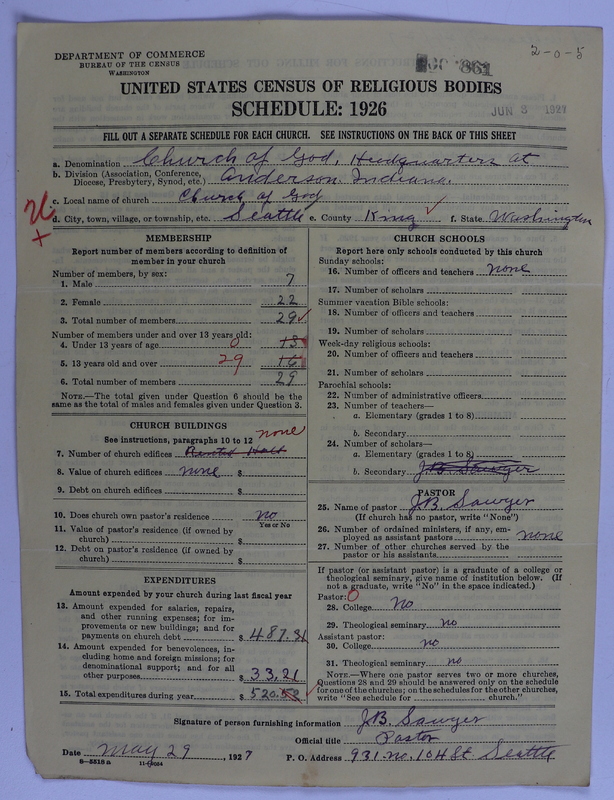 DEPARTMENT OF COMMERCE
BUREAU OF THE CENSUS
WASHINGTON
2-0-5
JUN 3 1927
UNITED STATES CENSUS OF RELIGIOUS BODIES
SCHEDULE: 1926
FILL OUT A SEPARATE SCHEDULE FOR EACH CHURCH. SEE INSTRUCTIONS ON THE BACK OF THIS SHEET
a. Denomination Church of God, Headquarters at
b. Division (Association, Conference,
Diocese, Presbytery, Synod, etc.) Anderson Indiana.
c. Local name of church Church of God
d. City, town, village, or township, etc. Seattle e. County King f. State Washington
MEMBERSHIP
Report number of members according to definition of
member in your church
Number of members, by sex:
1. Male 7
2. Female 22
3. Total number of members 29
Number of members under and over 13 years old:
4. Under 13 years of age 0 13
5. 13 years old and over 29 16
6. Total number of members 29
NOTE.—The total given under Question 6 should be
same as the total of males and females given under Question 3.
CHURCH BUILDINGS
See instructions, paragraphs 10 to 12 none
7. Number of church edifices Rented Hall
8. Value of church edifices none $
9. Debt on church edifices $
10. Does church own pastor's residence no
Yes or No
11. Value of pastor's residence (if owned by
church) $
12. Debt on pastor's residence (if owned by
church) $
EXPENDITURES
Amount expended by your church during last fiscal year
13. Amount expended for salaries, repairs,
and other running expenses; for im-
provements or new buildings; and for
payments on church debt $ 487.31
14. Amount expended for benevolences, in-
cluding home and foreign missions; for
denominational support; and for all
other purposes $ 33.21
15. Total expenditures during year $ 520.52
CHURCH SCHOOLS
Report here only schools conducted by this church
Sunday schools:
16. Number of officers and teachers none
17. Number of scholars
Summer vacation Bible schools:
18. Number of officers and teachers
19. Number of scholars
Week-day religious schools:
20. Number of officers and teachers
21. Number of scholars
Parochial schools:
22. Number of administrative officers
23. Number of teachers—
a. Elementary (grades 1 to 8)
b. Secondary
24. Number of scholars—
a. Elementary (grades 1 to 8)
b. Secondary J.B. Sawyer
PASTOR
25. Name of pastor J.B. Sawyer
(If church has no pastor, write "None")
26. Number of ordained ministers, if any, em-
ployed as assistant pastors none
27. Number of other churches served by the
pastor or his assistants
If pastor (or assistant pastor) is a graduate of a college or
theological seminary, give name of institution below. (If
not a graduate, write "No" in the space indicated.)
Pastor: 0
28. College No
29. Theological seminary no
Assistant pastor:
30. College no
31. Theological seminary no
NOTE.—Where one pastor serves two or more churches,
Questions 28 and 29 should be answered only on the schedule
for one of the churches; on the schedules for the other churches,
write "See schedule for church."
Signature of person furnishing information J.B. Sawyer
Official title Pastor
Date May 29, 1927 P. O. Address 931 no. 104 St Seattle
8—5518a